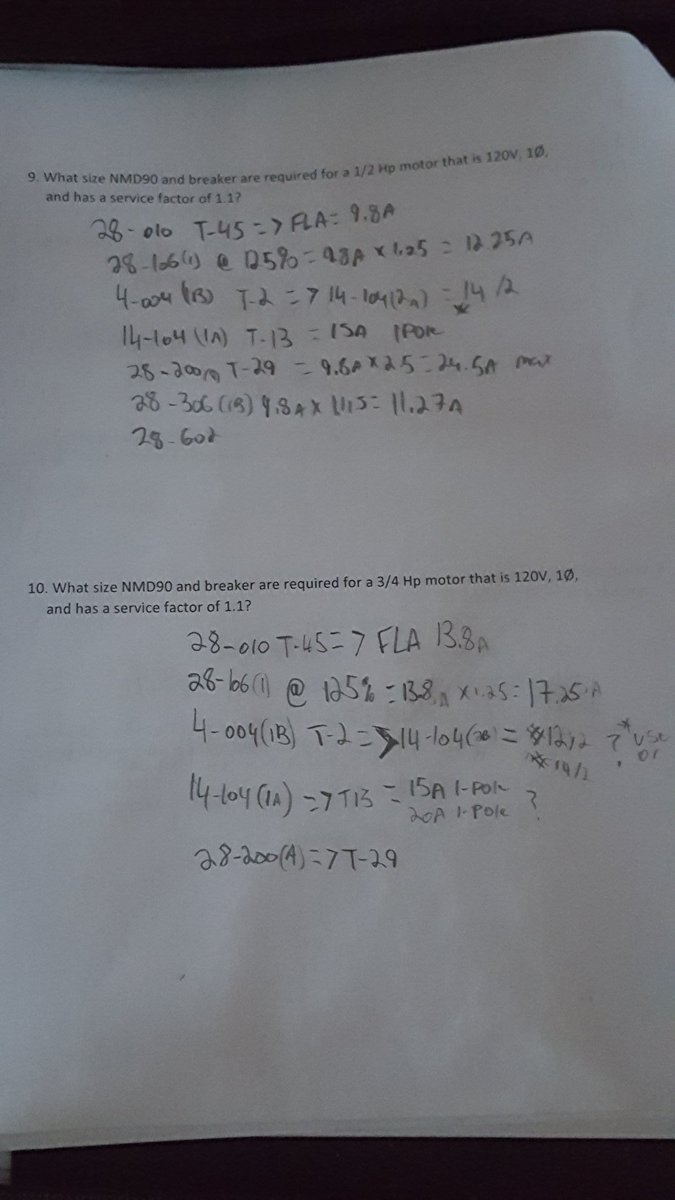 9. What size NMD90 and breaker are required for a 1/2 Hp motor that is 120V, 1Ø,
and has a service factor of 1.1?
28-010 T-45 => FLA = 9.8A
28-106(1) @ 125% = 9.8A x 1.25 = 12.25A
4-004 (1B) T-2 => 14-104(2A) = 14/2
14-104 (1A) T-13 = 15A 1 Pole
28-200 T-29 = 9.8A x 2.5 = 24.5A max
28-306 (1B) 9.8A x 1.15 = 11.27A
28-602
10. What size NMD90 and breaker are required for a 3/4 Hp motor that is 120V, 1Ø,
and has a service factor of 1.1?
28-010 T-45 => FLA 13.8A
28-106(1) @ 125% = 13.8A x 1.25 = 17.25A
4-004(1B) T-2 => 14-104 = 12/2 ? * use
** 14/2 or
14-104 (1A) => T13 = 15A 1-Pole ?
20A 1-Pole
28-200(A) => T-29